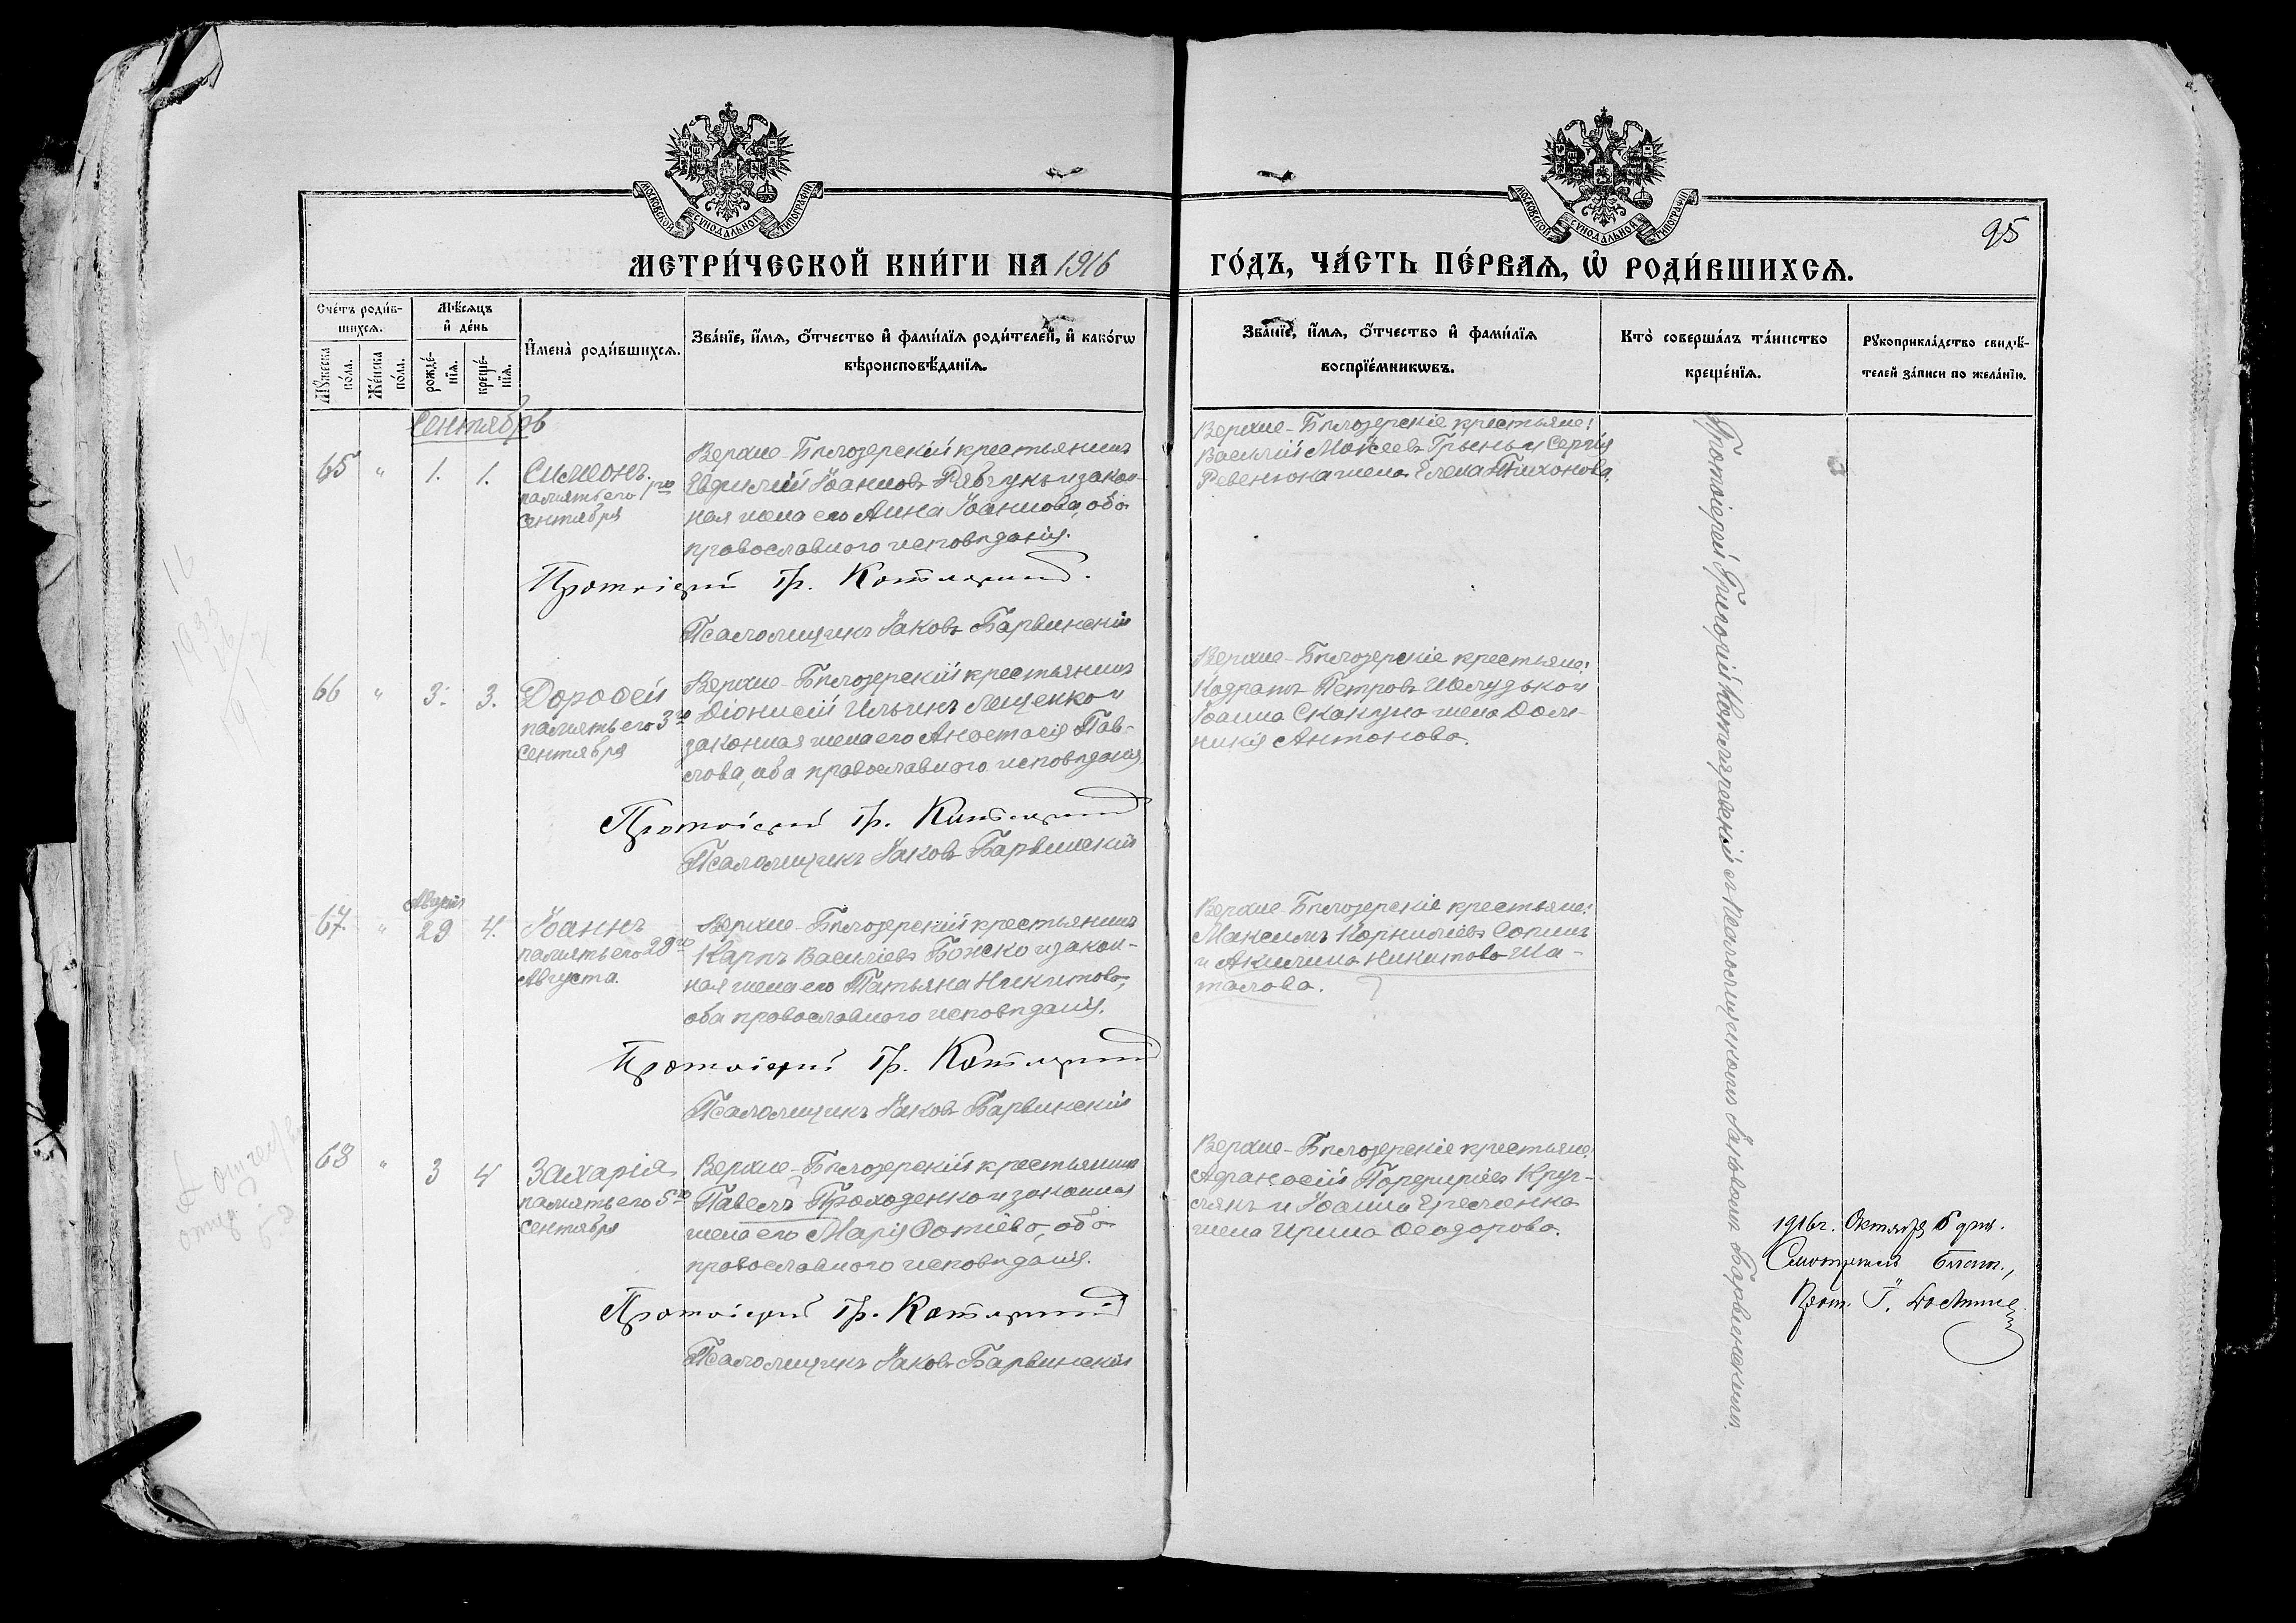 МОСКОВСКОЙ СУНОДАЛЬНОЙ ТИПОГРАФІИ
МОСКОВСКОЙ СУНОДАЛЬНОЙ ТИПОГРАФІИ
95
МЕТРИ́ЧЕСКОЙ КНИ́ГИ НА 1916
ГО́ДЪ, ЧА́СТЬ ПЕ́РВАЯ, Ѡ РОДИ́ВШИХСЯ.
Сче́тъ роди́в-
шихся.
Му́жеска по́ла.
Же́нска по́ла.
Мѣ́сяцъ
и де́нь
рожде́-
нїя.
креще́-
нїя.
Имена̀ роди́вшихся.
Зва́нїе, и́мя, о́тчество и фами́лїя роди́телей, и како́гѡ
вѣроисповѣ́данїя.
Зва́нїе, и́мя, о́тчество и фами́лїя
воспрїе́мникѡвъ.
Кто̀ соверша́лъ та́инство
креще́нїя.
Рукоприкла́дство свидѣ́-
телей за́писи по жела́нїю.
Сентябрь
65 " 1. 1.
Симеонъ
память его 1го
сентября
Верхне-Бѣлозерскій крестьянинъ
Евфимій Іоанновъ Рябчукъ и закон-
ная жена его Анна Іоаннова, оба
православного исповѣданія.
Протоіерей Гр. Котляревскій.
Псаломщикъ Іаковъ Барвинскій
Верхне-Бѣлозерскіе крестьяне:
Василій Моѵсеевъ Грынь и Сергія
Ревенюка жена Елена Тихонова.
66 " 3. 3.
Дороѳей
память его 3го
сентября
Верхне-Бѣлозерскій крестьянинъ
Діонисій Ильинъ Лященко и
законная жена его Анастасія Пав-
лова, оба православного исповѣданія
Протоіерей Гр. Котляревскій
Псаломщикъ Іаковъ Барвинскій
Верхне-Бѣлозерскіе крестьяне:
Кодратъ Петровъ Шелудько и
Іоанна Скакуна жена Дом-
никія Антонова.
Августъ
67. " 29 4.
Іоаннъ
память его 29го
Августа.
Верхне-Бѣлозерскій крестьянинъ
Карпъ Василіевъ Божко и закон-
ная жена его Татьяна Никитова,
оба православного исповѣданія.
Протоіерей Гр. Котляревскій
Псаломщикъ Іаковъ Барвинскій
Верхне-Бѣлозерскіе крестьяне:
Максимъ Корниліевъ Сопинъ
и Акилина Никитова Ша-
талова.
68 " 3 4
Захарія
память его 5го
сентября
Верхне-Бѣлозерскій крестьянинъ
Павелъ Проходенко и законная
жена его Марія Фотіева, оба
православного исповѣданія.
Протоіерей Гр. Котляревскій
Псаломщикъ Іаковъ Барвинскій
Верхне-Бѣлозерскіе крестьяне:
Аѳанасій Порфиріевъ Круг-
лякъ и Іоанна Еремченка
жена Ирина Ѳеодорова.
Протоіерей Григорій Котляревскій съ псаломщикомъ Іаковомъ Барвинскимъ.
1916г. Октября 5 дня.
Смотрѣлъ Благ.,
Прот. Г.